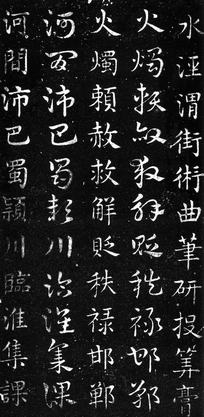 水涇渭街術曲筆研投筭膏
火燭賴赦救解貶秩祿邯鄲
火燭賴赦救解貶秩禄邯鄲
河間沛巴蜀潁川臨淮集課
河間沛巴蜀潁川臨淮集課